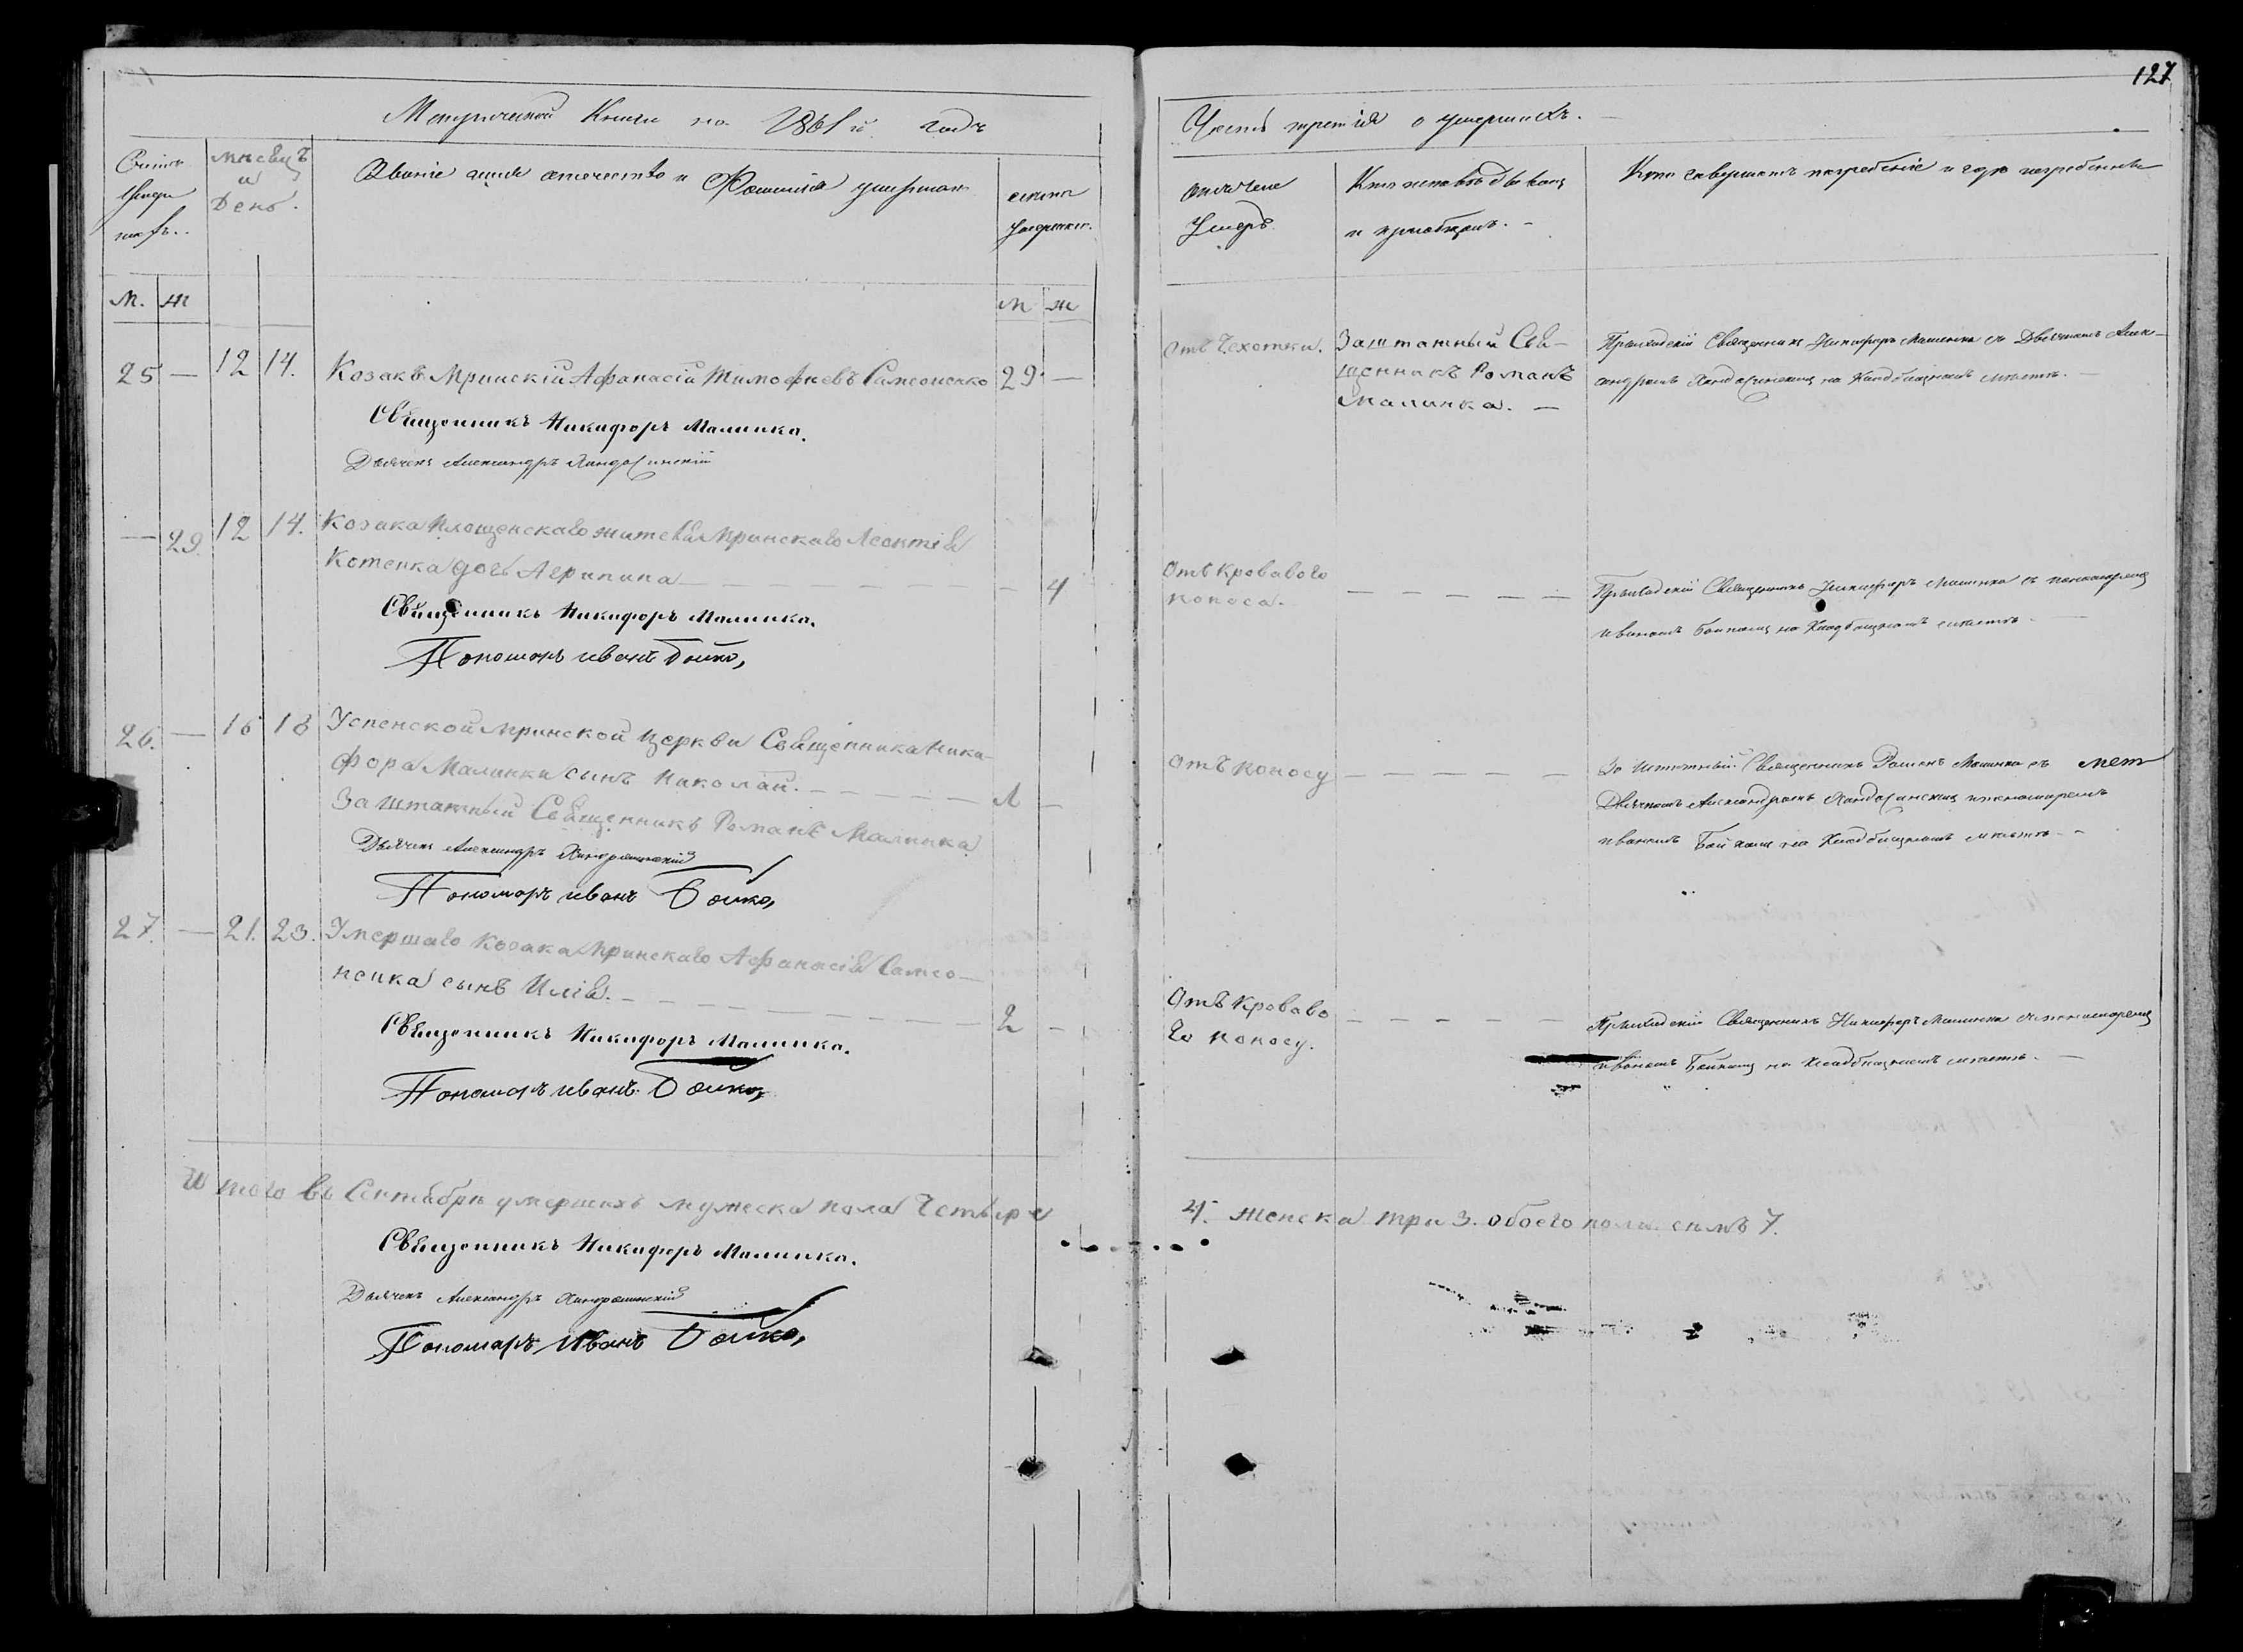 127
Метрической Книги на 1861й годъ
Часть третія о умершихъ.
Счетъ умер шихъ.
Мѣсяцъ и День.
Званіе имя отечество и Фамилія умершаго
Лѣта умершаго.
Отъ чего Умеръ.
Кто исповѣдывалъ и пріобщалъ. -
Кто совершалъ погребеніе и гдѣ погребены
М. Ж
М Ж
25 — 12 14. Козакъ Мринскій Афанасій Тимофѣевъ Самсоненко 29 —
Священникъ Никифоръ Малинка.
Дьячекъ Александръ
Отъ Чехотки.
Заштатный Свя-
щенникъ Романъ
Малинка. —
Приходскій Священникъ Никифоръ Малинка съ Дьячкомъ Алек-
сандромъ на Кладбищномъ мѣстѣ. —
— 29. 12 14. Козака Площенскаго жителя Мринскаго Леонтія
Котенка дочь Агрипина — — 4
Священникъ Никифоръ Малинка.
Пономарь Иванъ Бойко,
Отъ Кроваваго
поноса.
Приходскій Священникъ Никифоръ Малинка съ пономаремъ
Иваномъ Бойкомъ на Кладбищномъ мѣстѣ. —
26. — 16 18 Успенской Мринской Церкви Священника Ники-
фора Малинки сынъ Николай. — 1 —
Заштатный Священникъ Романъ Малинка
Дьячекъ Александръ
Пономарь Иванъ Бойко,
Отъ поносу
Заштатный Священникъ Романъ Малинка съ
Дьячкомъ Александромъ и пономаремъ
Иваномъ Бойкомъ на Кладбищномъ мѣстѣ. -
27. — 21. 23. Умершаго Козака Мринскаго Афанасія Самсо-
ненка сынъ Илія. — 2 —
Священникъ Никифоръ Малинка.
Пономарь Иванъ Бойко,
Отъ Кроваво
го поносу.
Приходскій Священникъ Никифоръ Малинка съ пономаремъ
Иваномъ Бойкомъ на Кладбищномъ мѣстѣ. —
Итого въ Сентябрѣ умершихъ мужеска пола Четыре
4. женска три 3. обоего пола семь 7.
Священникъ Никифоръ Малинка.
Дьячекъ Александръ
Пономарь Иванъ Бойко,